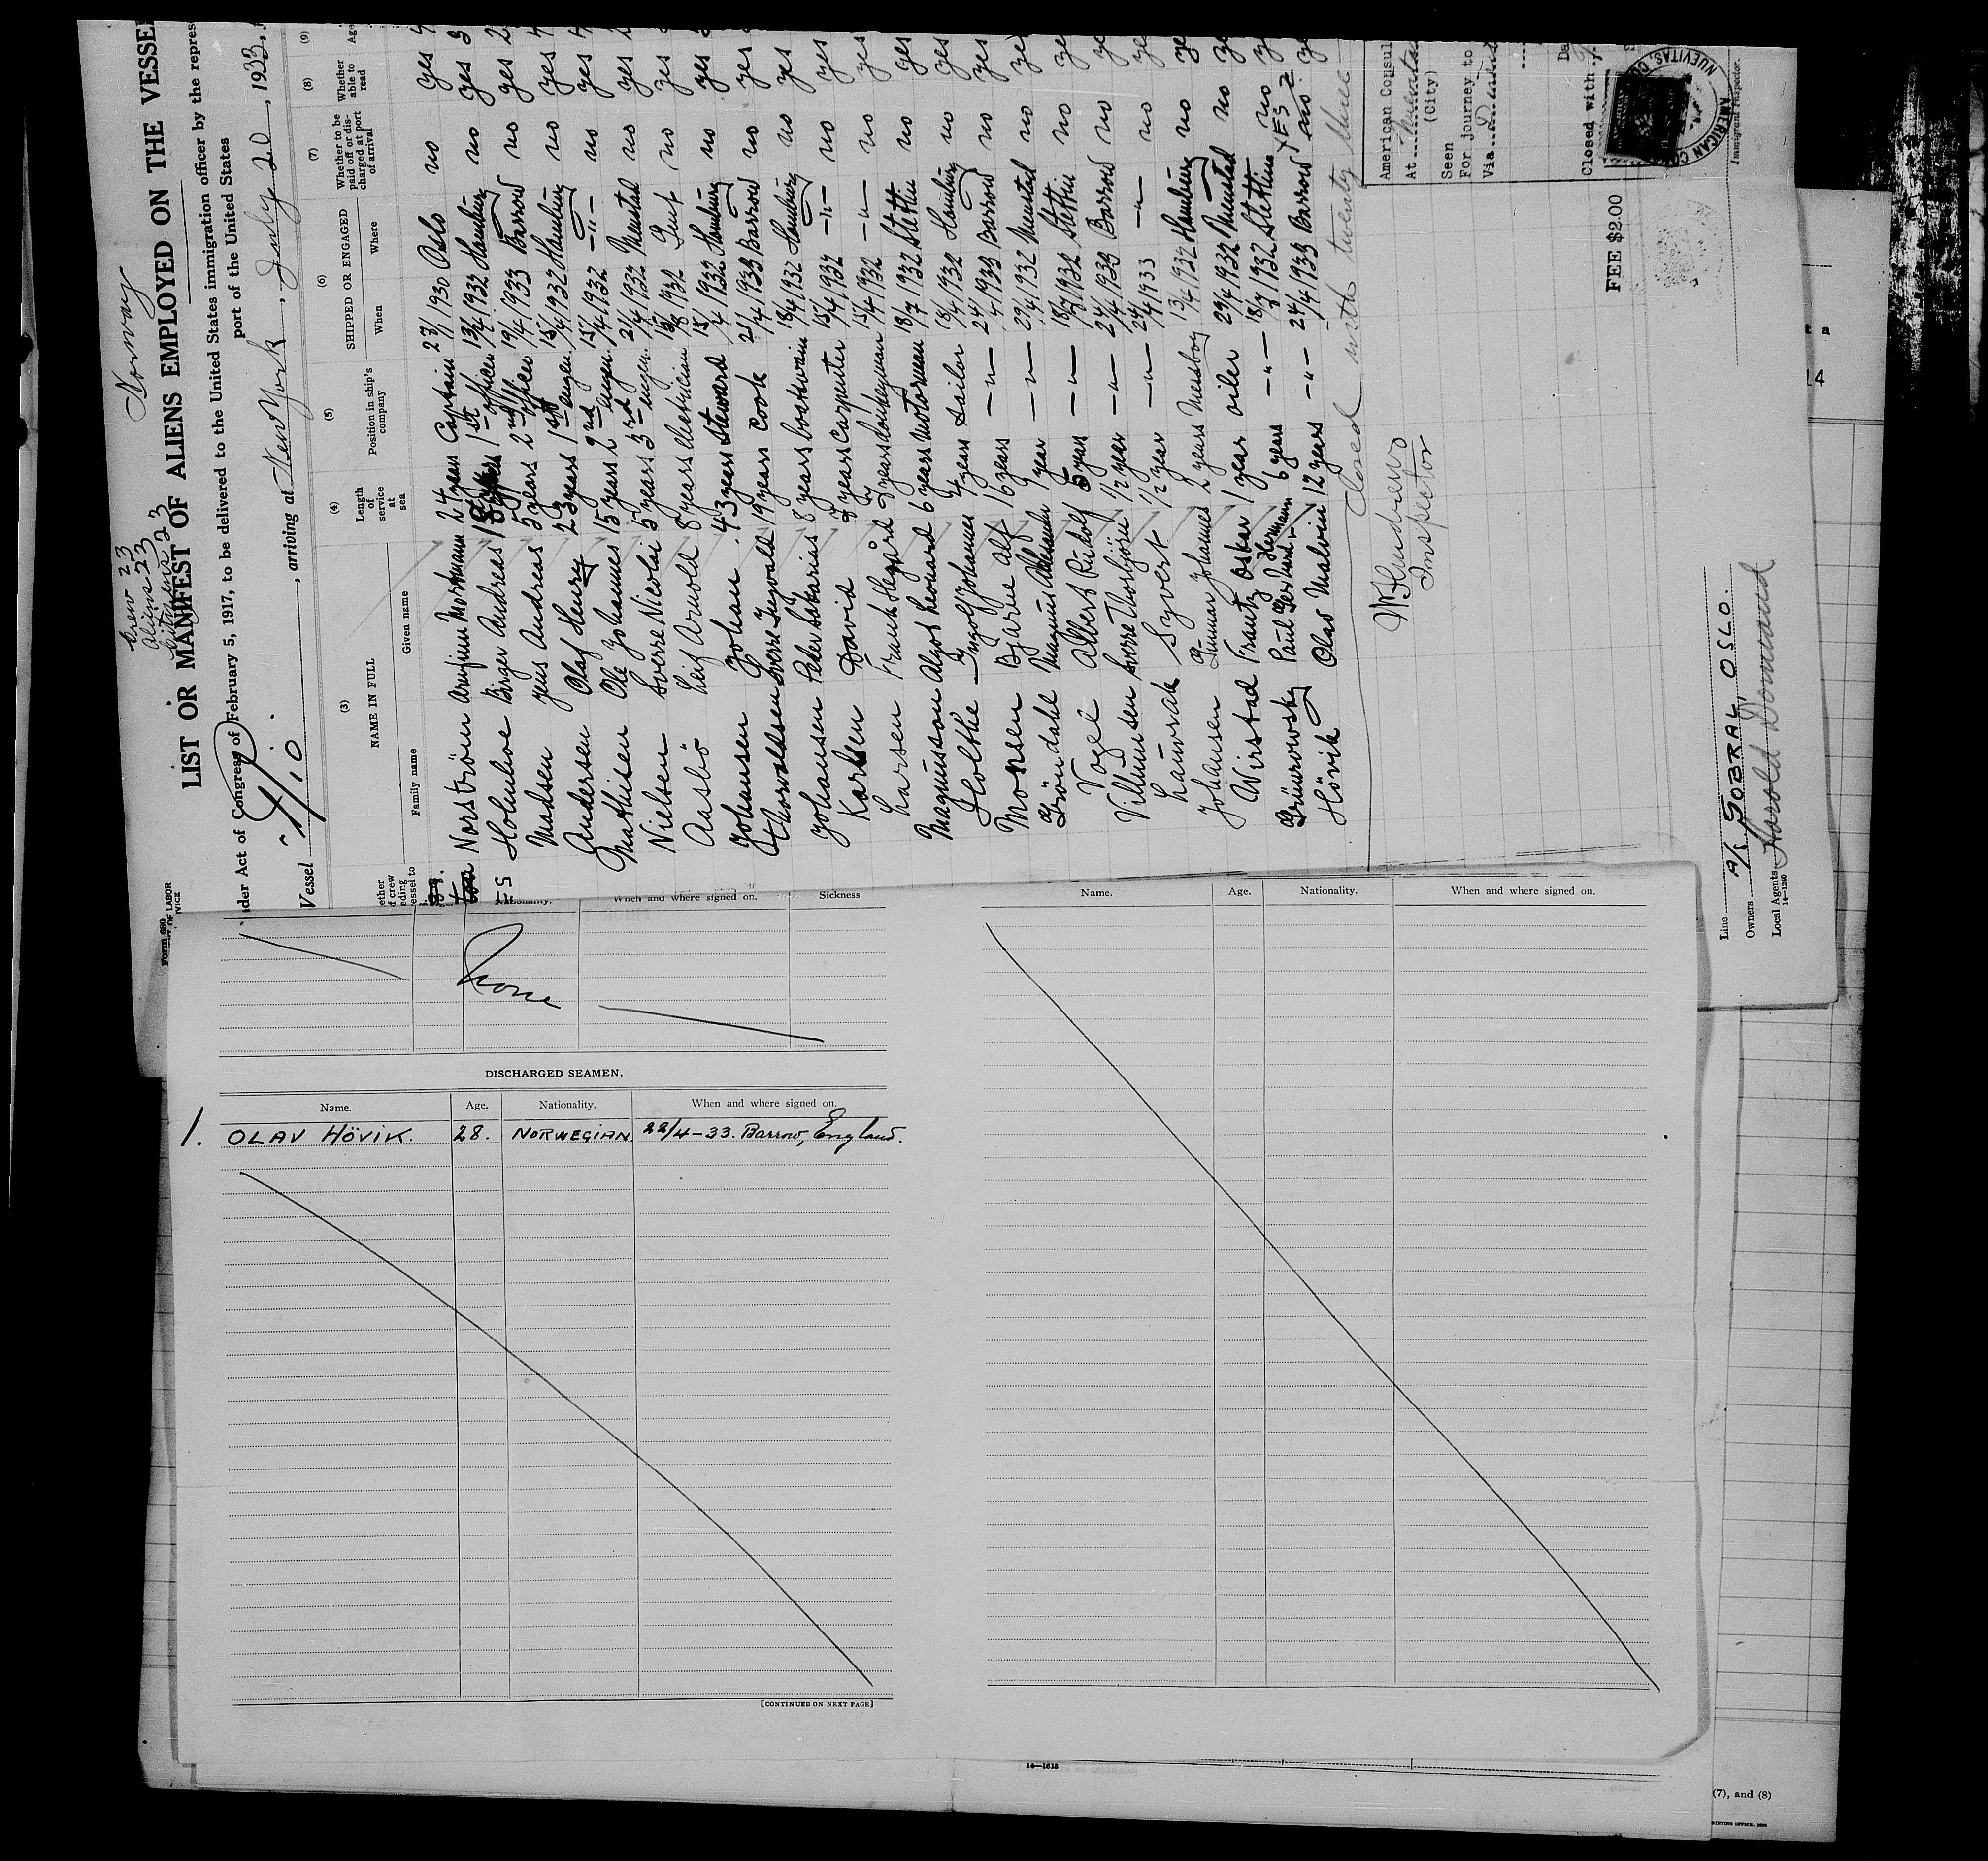 Norway
Crew 23
Aliens 23
LIST OR MANIFEST OF ALIENS EMPLOYED ON THE VESSE
February 5, 1917, to be delivered to the United States immigration officer by the repres
port of the United States
Vessel "Rio", arriving at New York, July 20, 1933.
(3) (4) (5) (6) (7) (8) (9)
NAME IN FULL
Family name Given name
Length of service at sea
Position in ship's company
SHIPPED OR ENGAGED
When Where
Whether to be paid off or discharged at port of arrival
Whether able to read
Age
Norström Arnfinn Mortmann 24 years Captain 23/1 1930 Oslo no yes
Holmboe Birger Andreas 1st officer 13/4 1932 Hamburg no yes
Madsen Jens Andreas 5 years 2nd officer 19/4 1933 Barrow no yes
Andersen Olaf Henry 23 years 1st engen. 15/4 1932 Hamburg no yes
Mathisen Ole Johannes 15 years 2nd engen. 15/4 1932 -"- no yes
Nielsen Sverre Nicolai 5 years 3rd engen. 21/4 1932 no yes
Aasbö Leif Arnold 8 years electrician 1932 no yes
Johansen Johan 43 years Steward 15/4 1932 Hamburg no yes
Thorvaldsen Sverre Ingvald 19 years Cook 21/4 1933 Barrow no yes
Johansen Peder Sakarias 8 years boatswain 18/4 1932 Hamburg no yes
Karlsen David years Carpenter 15/4 1932 -"- no yes
Larsen Frank Hegård years donkeyman 15/4 1932 -"- no yes
Magnusson Algot Leonard 6 years Motorman 18/7 1932 Stettin no yes
Holthe Ingolf Johannes 4 years Sailor 18/4 1932 Hamburg no yes
Monsen Bjarne Alf 6 years -"- 24/4 1933 Barrow no yes
Gröndahl Magnus 1 year -"- 29/4 1932 no yes
Voge Albert Rudolf 5 years -"- 18/7 1932 Stettin no yes
Villumsen Sverre Thorbjörn 1/2 year -"- 24/4 1933 Barrow no yes
Laurak Syvert 1/2 year -"- 24/4 1933 -"- no yes
Johansen Gunnar Johannes 2 years Messboy 13/4 1932 Hamburg no yes
Wirstad Frantz Oskar 1 year oiler 29/4 1932 no yes
Grünrowsky Paul Ferdinand Hermann 6 years -"- 18/7 1932 Stettin no
Hövik Olav Malvin 12 years -"- 24/4 1933 Barrow no YES
Closed with twenty three
Inspector
American Consul
At
(City)
Seen
For journey to
Via
Closed with
FEE $2.00
AMERICAN CO
NUEVITAS, CU
Immigrant Inspector.
Line
Owners A/S SOBRAL, OSLO.
Local Agents
14—1240
Form 680
OF LABOR
When and where signed on. Sickness
None
Name. Age. Nationality. When and where signed on.
DISCHARGED SEAMEN.
Name. Age. Nationality. When and where signed on.
1. OLAV HÖVIK. 28. NORWEGIAN. 22/4-33. Barrow, England.
[CONTINUED ON NEXT PAGE]
14—1613
14
(7), and (8)